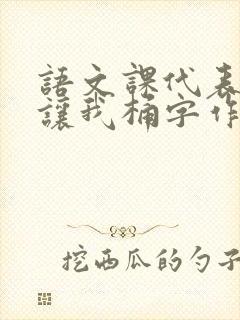 語文課代表
讓我桶字作
挖西瓜的勺子